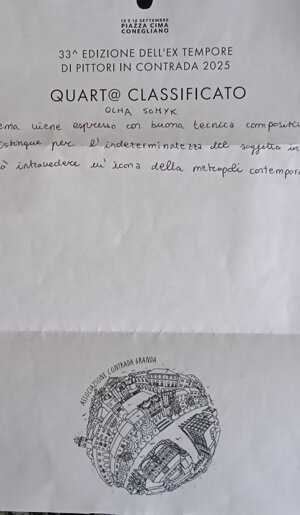 13 E 14 SETTEMBRE
PIAZZA CIMA
CONEGLIANO
33^ EDIZIONE DELL'EX TEMPORE
DI PITTORI IN CONTRADA 2025
QUART@ CLASSIFICATO
OLHA SOMYK
ema viene espresso con buona tecnica compositiv
istingue per l'indeterminatezza del soggetto in
ò intravedere un'icona della metropoli contempora
ASSOCIAZIONE CONTRADA GRANDA